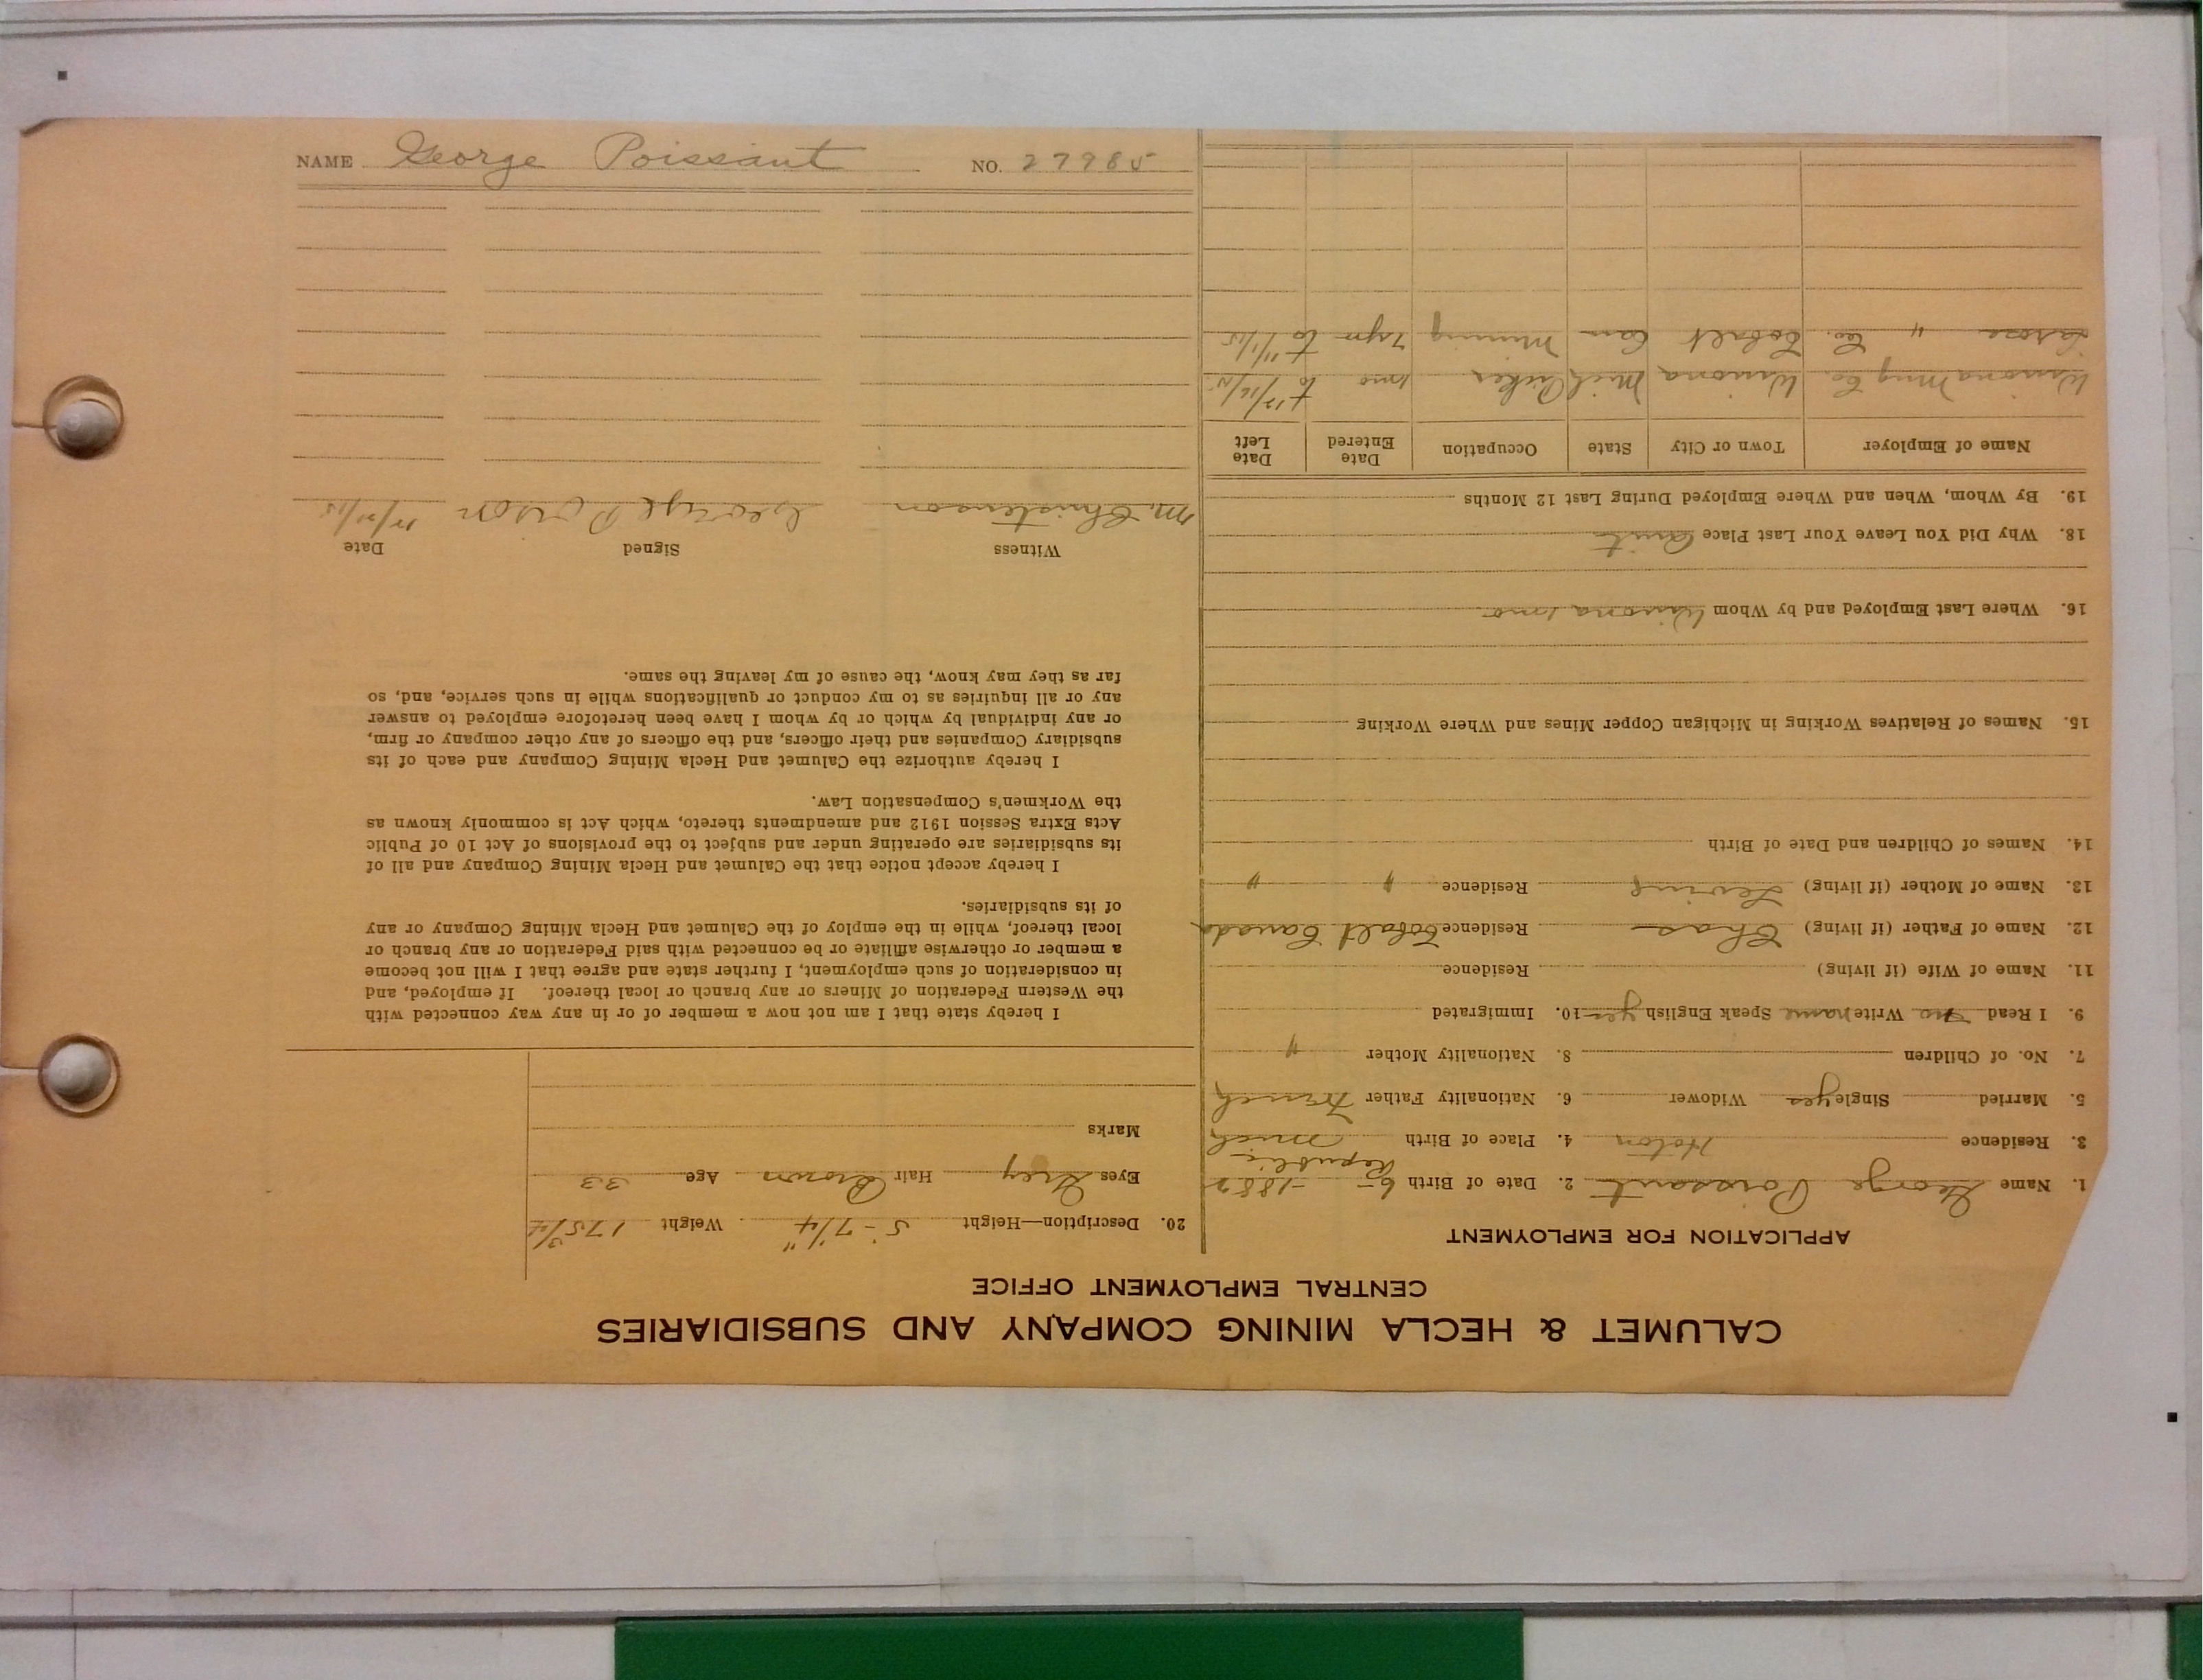 CALUMET & HECLA MINING COMPANY AND SUBSIDIARIES
CENTRAL EMPLOYMENT OFFICE
APPLICATION FOR EMPLOYMENT
1. Name George Poissant 2. Date of Birth 6 - 1882
Republic
3. Residence Hoton 4. Place of Birth Mich
5. Married Single yes Widower 6. Nationality Father French
7. No. of Children 8. Nationality Mother "
9. I Read no Write name Speak English yes 10. Immigrated
11. Name of Wife (if living) Residence
12. Name of Father (if living) Chas Residence Cobalt Canada
13. Name of Mother (if living) Residence " "
14. Names of Children and Date of Birth
15. Names of Relatives Working in Michigan Copper Mines and Where Working
16. Where Last Employed and by Whom Winona 1 mo
18. Why Did You Leave Your Last Place Quit
19. By Whom, When and Where Employed During Last 12 Months
Name of Employer Town or City State Occupation Date Entered Date Left
Winona Mng Co. Winona Mich 1 mo to
Larose " Co. Cobalt Can Mining 7 yrs to
20. Description—Height 5-7 1/4" Weight 175 3/4
Eyes Grey Hair Brown Age 33
Marks
I hereby state that I am not now a member of or in any way connected with
the Western Federation of Miners or any branch or local thereof. If employed, and
in consideration of such employment, I further state and agree that I will not become
a member or otherwise affiliate or be connected with said Federation or any branch or
local thereof, while in the employ of the Calumet and Hecla Mining Company or any
of its subsidiaries.
I hereby accept notice that the Calumet and Hecla Mining Company and all of
its subsidiaries are operating under and subject to the provisions of Act 10 of Public
Acts Extra Session 1912 and amendments thereto, which Act is commonly known as
the Workmen's Compensation Law.
I hereby authorize the Calumet and Hecla Mining Company and each of its
subsidiary Companies and their officers, and the officers of any other company or firm,
or any individual by which or by whom I have been heretofore employed to answer
any or all inquiries as to my conduct or qualifications while in such service, and, so
far as they may know, the cause of my leaving the same.
Witness Signed Date
M. Christenson George Poison
NAME George Poissant NO. 27985